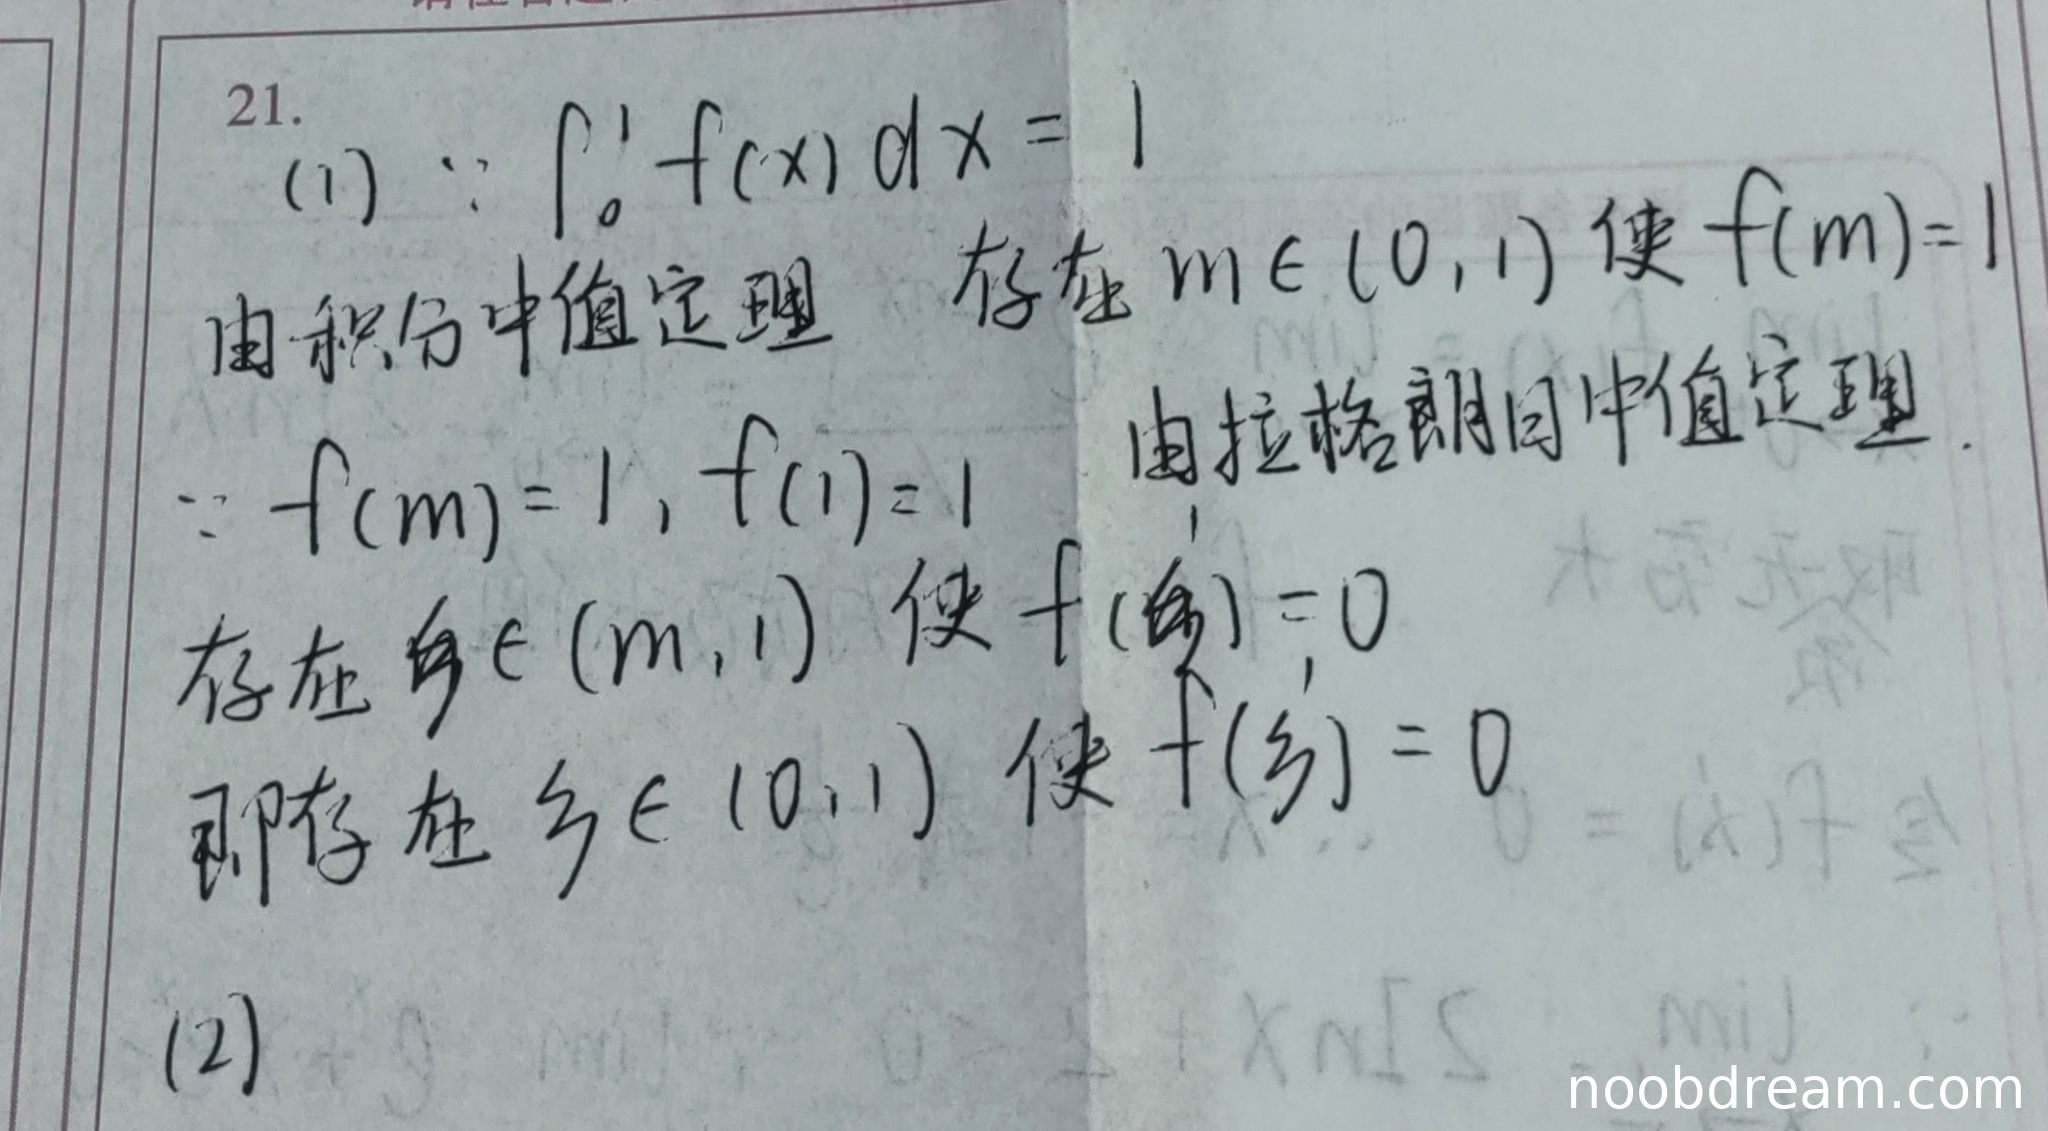 21.
(1) ∵ ∫₀¹ f(x) dx = 1
由积分中值定理 存在 m∈(0,1) 使 f(m)=1
∵ f(m)=1, f(1)=1 由拉格朗日中值定理.
存在 ξ∈(m,1) 使 f'(ξ)=0
即存在 ξ∈(0,1) 使 f'(ξ)=0
(2)
noobdream.com